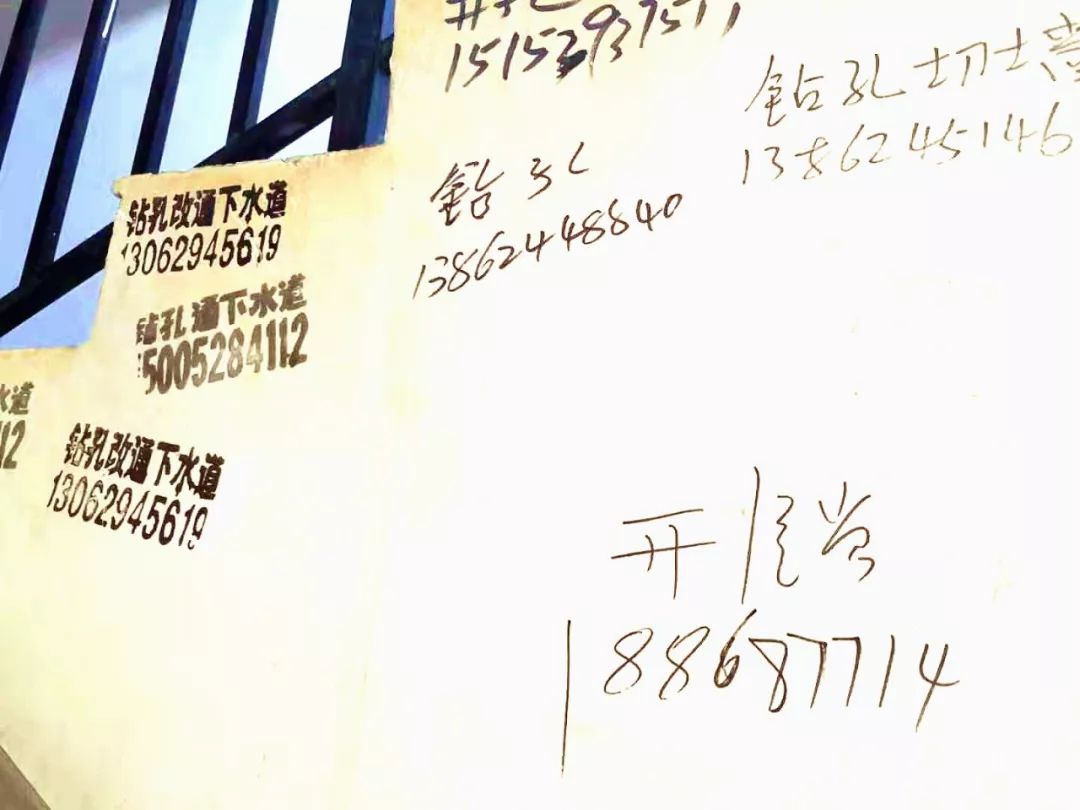 钻孔切
1386245146
钻孔
13862448840
钻孔改通下水道
13062945619
钻孔通下水道
5005284112
水道
12
钻孔改通下水道
13062945619
开锁
188687714